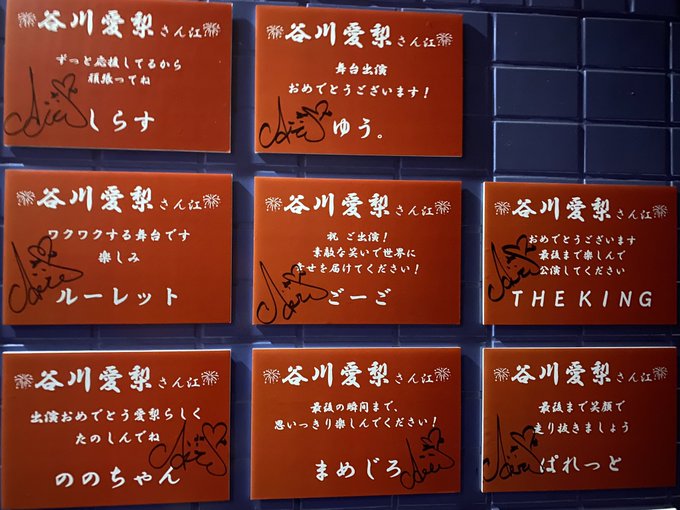 谷川愛梨さん江
ずっと応援してるから
頑張ってね
しらす
谷川愛梨さん江
舞台出演
おめでとうございます！
ゆう。
谷川愛梨さん江
ワクワクする舞台です
楽しみ
ルーレット
谷川愛梨さん江
祝 ご出演！
素敵な笑いで世界に
幸せを届けてください！
ごーご
谷川愛梨さん江
おめでとうございます
最後まで楽しんで
公演してください
THE KING
谷川愛梨さん江
出演おめでとう愛梨らしく
たのしんでね
ののちゃん
谷川愛梨さん江
最後の瞬間まで、
思いっきり楽しんでください！
まめじろ
谷川愛梨さん江
最後まで笑顔で
走り抜きましょう
ぱれっと